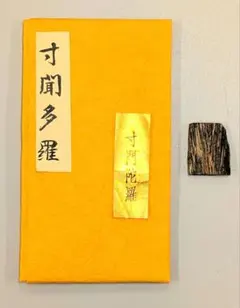 寸聞多羅
寸門陀羅